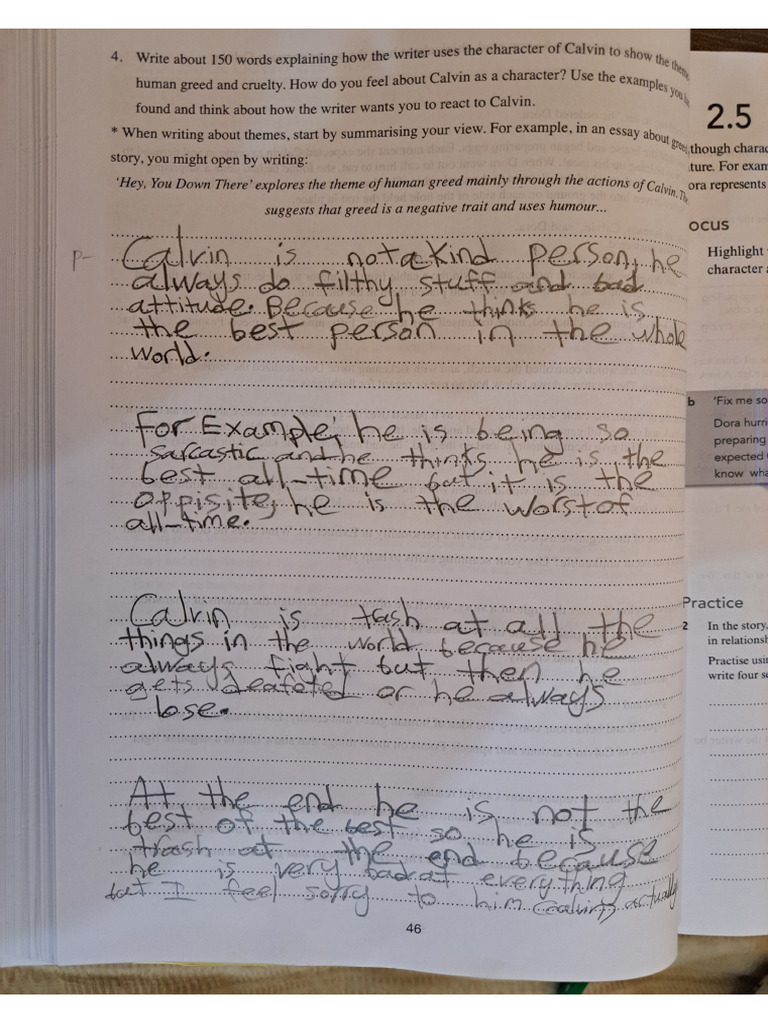 4. Write about 150 words explaining how the writer uses the character of Calvin to show the theme
human greed and cruelty. How do you feel about Calvin as a character? Use the examples you
found and think about how the writer wants you to react to Calvin.
* When writing about themes, start by summarising your view. For example, in an essay about greed
story, you might open by writing:
'Hey, You Down There' explores the theme of human greed mainly through the actions of Calvin. The
suggests that greed is a negative trait and uses humour...
P- Calvin is not a kind person, he
always do filthy stuff and bad
attitude. Because he thinks he is
the best person in the whole
world.
For Example, he is being so
sarcastic and he thinks he is the
best all-time but it is the
oppisite, he is the worst of
all-time.
Calvin is tash at all the
things in the world because he
always fight but then he
gets deafeted or he always
lose.
At the end he is not the
best of the best so he is
trash at the end because
he is very bad at everything
but I feel sorry to him actually
46
2.5
though charac
ture. For exam
ora represents
ocus
Highlight
character a
b 'Fix me so
Dora hurri
preparing
expected
know wha
Practice
2 In the story,
in relationsh
Practise usi
write four se